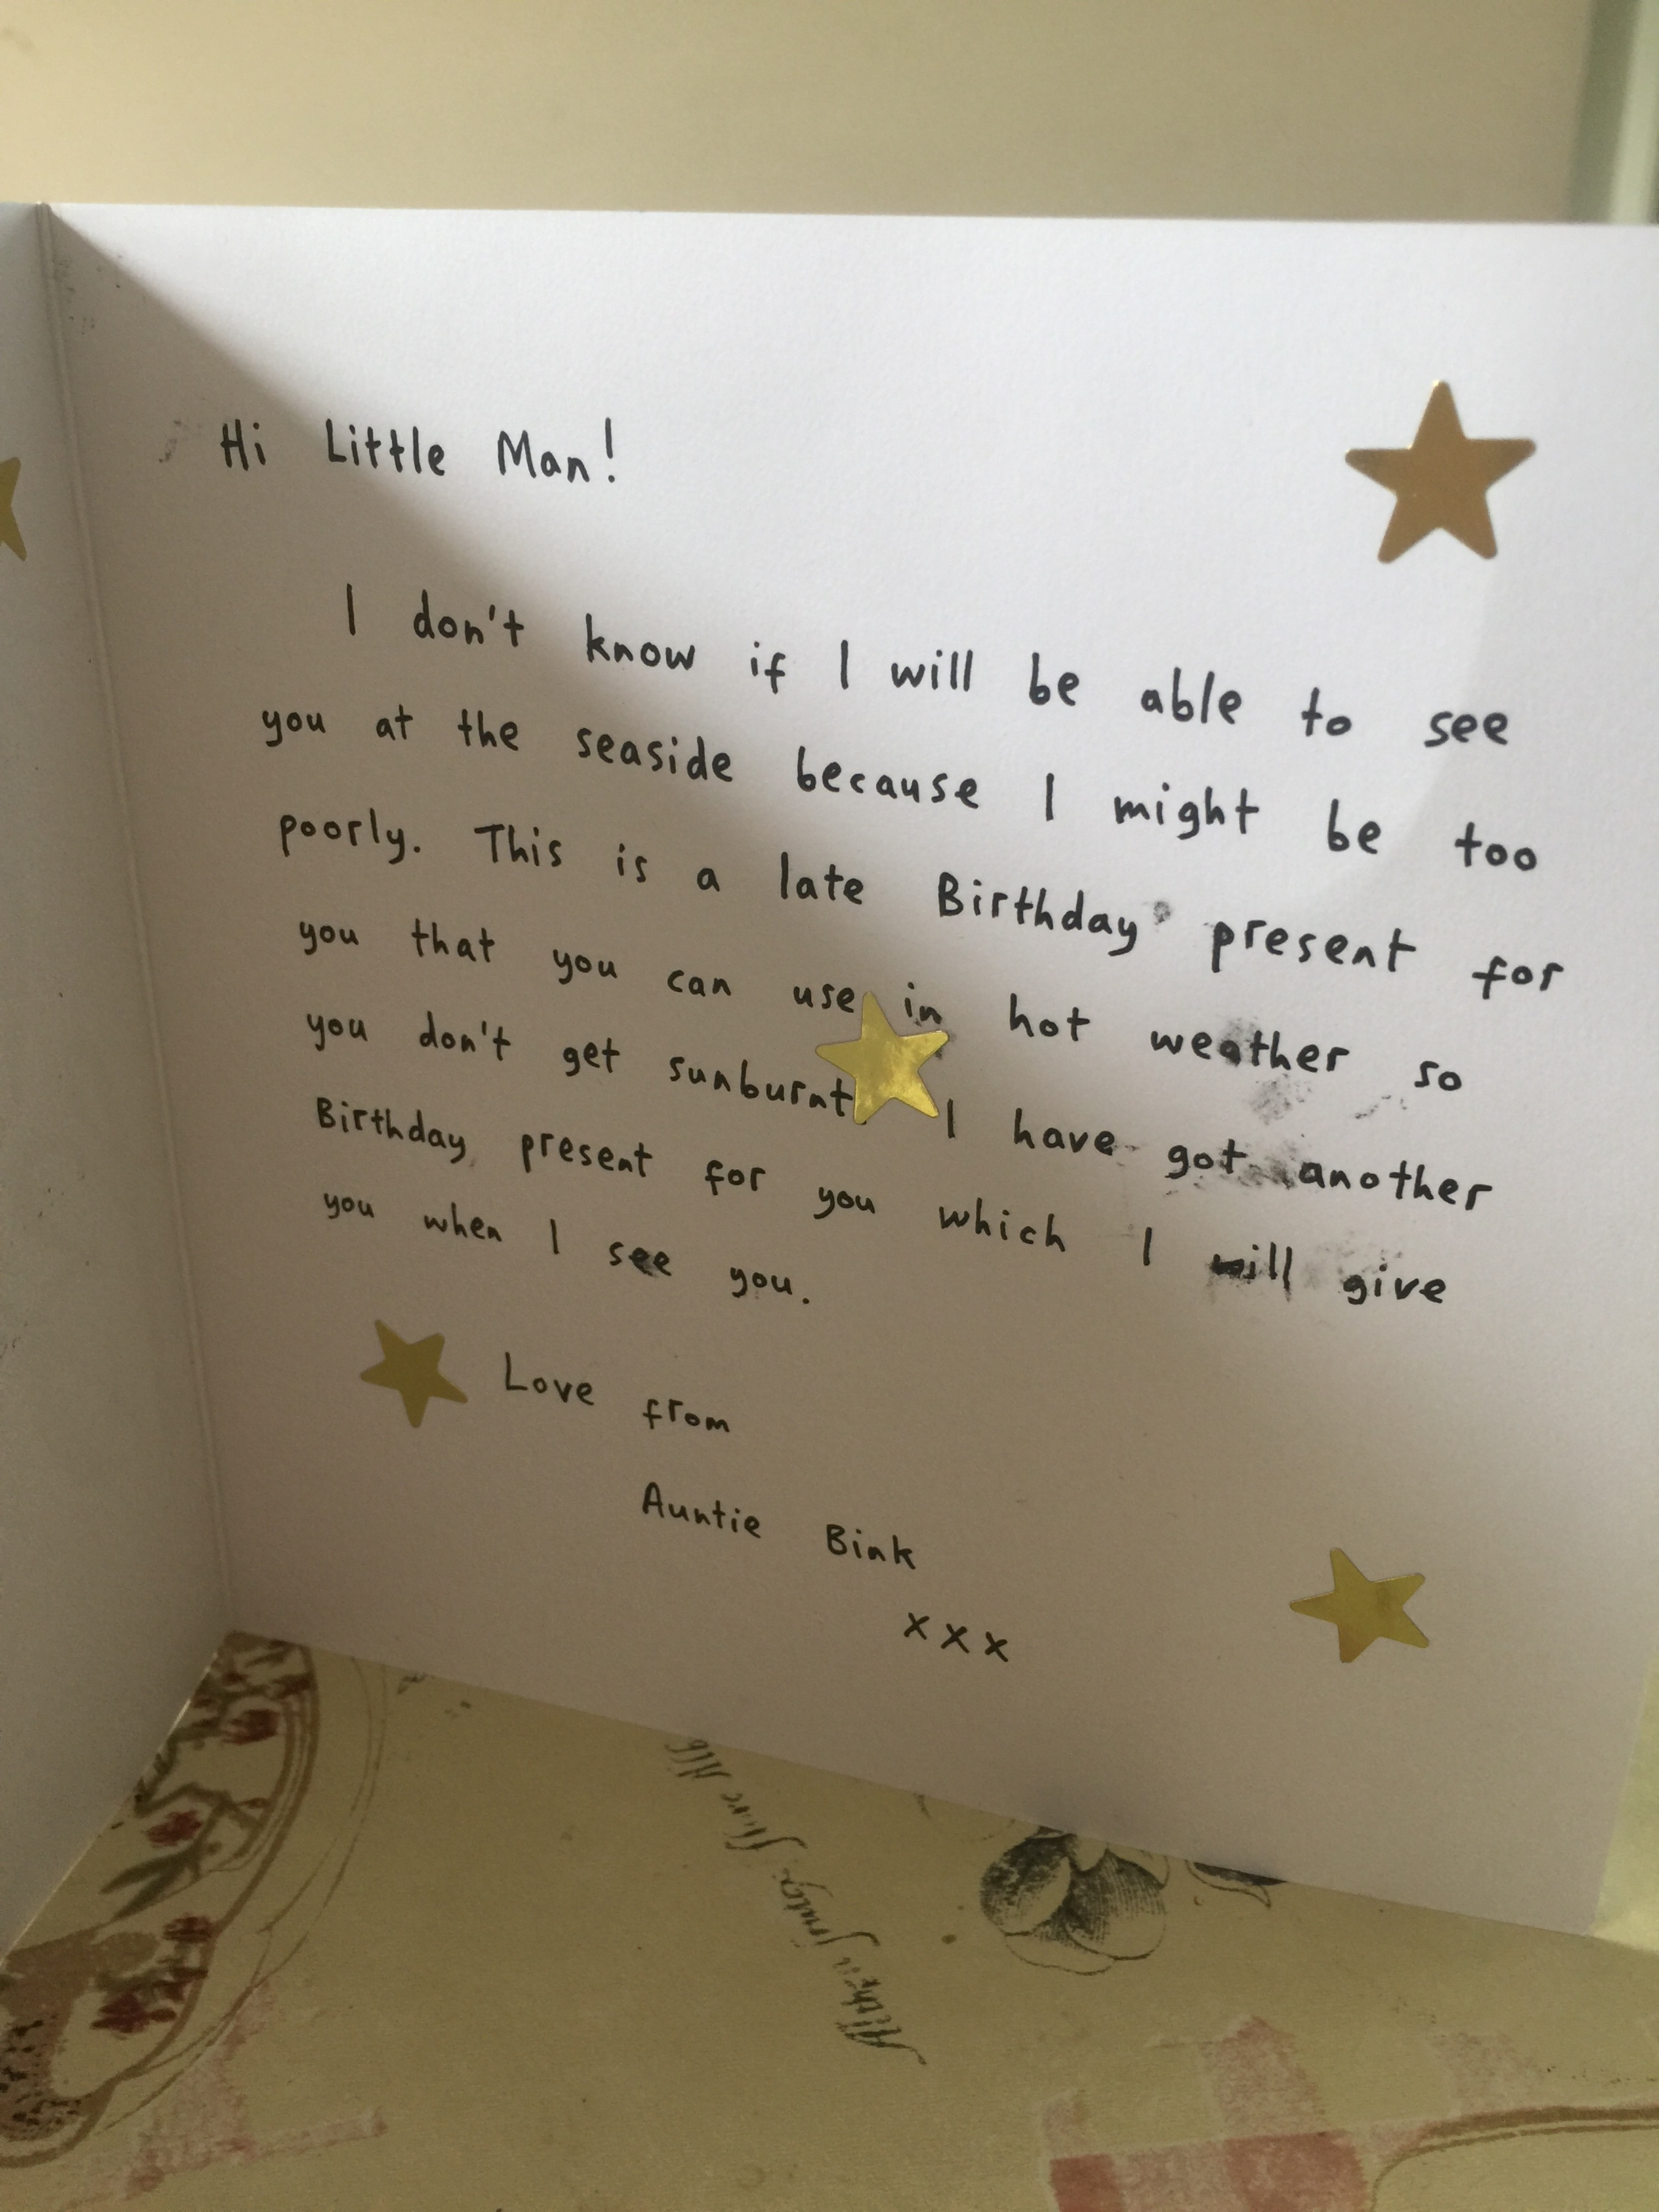 Hi Little Man!
I don't know if I will be able to see
you at the seaside because I might be too
poorly. This is a late Birthday present for
you that you can use in hot weather so
you don't get sunburnt I have got another
Birthday present for you which I will give
you when I see you.
Love from
Auntie Bink
xxx